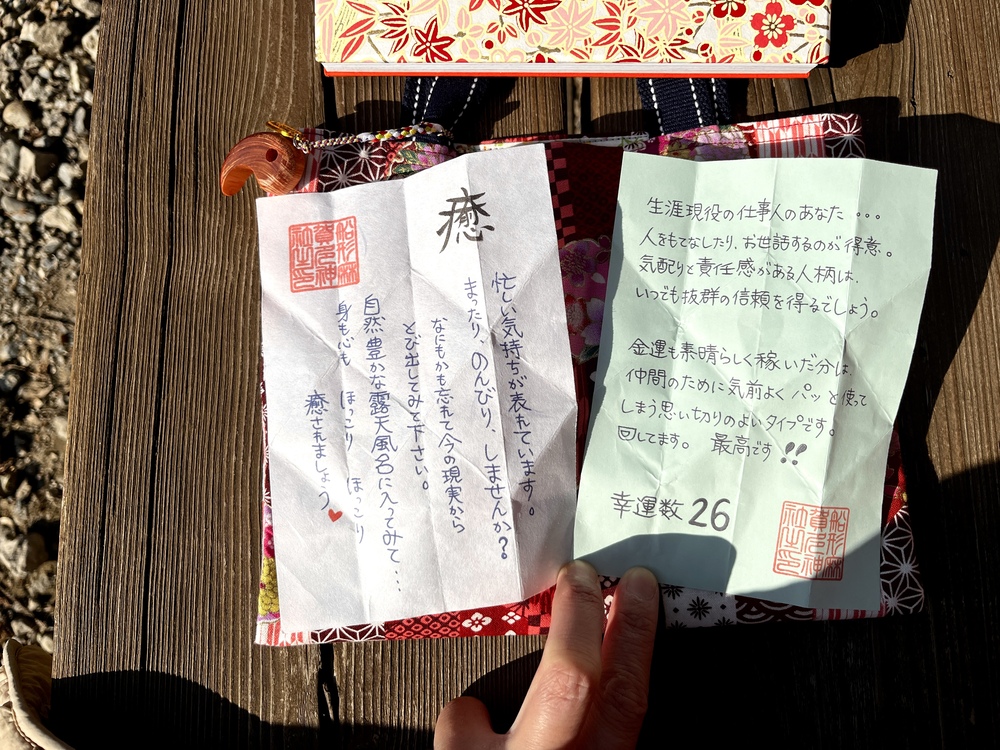 癒
忙しい気持ちが表れています。
まったり、のんびり、しませんか?
なにもかも忘れて今の現実から
とび出してみて下さい。
自然豊かな露天風呂に入ってみて...
身も心も ほっこり ほっこり
癒されましょう♥
船形麻
賀多神
社之印
生涯現役の仕事人のあなた...
人をもてなしたり、お世話するのが得意。
気配りと責任感がある人柄は、
いつでも抜群の信頼を得るでしょう。
金運も素晴らしく稼いだ分は、
仲間のために気前よくパッと使って
しまう思い切りのよいタイプです。
回してます。 最高です!!
幸運数 26
船形麻
賀多神
社之印